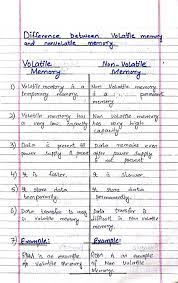 Difference between Volatile memory
and nonvolatile memory.
Volatile Memory
Non-Volatile Memory
1) Volatile memory is a temporary memory.
Non Volatile memory is a permanent memory.
2) Volatile memory has a very low capacity
Non volatile memory has very high capacity.
3) Data is present till power supply is present
Data remains even after power supply is not present
4) It is faster.
It is slower.
5) It store data temporarily.
It store data permanently.
6) Data transfer is easy in volatile memory
Data transfer is difficult in non volatile memory.
7) Example:
Example:
RAM is an example of Volatile Memory
ROM is an example of Non Volatile Memory